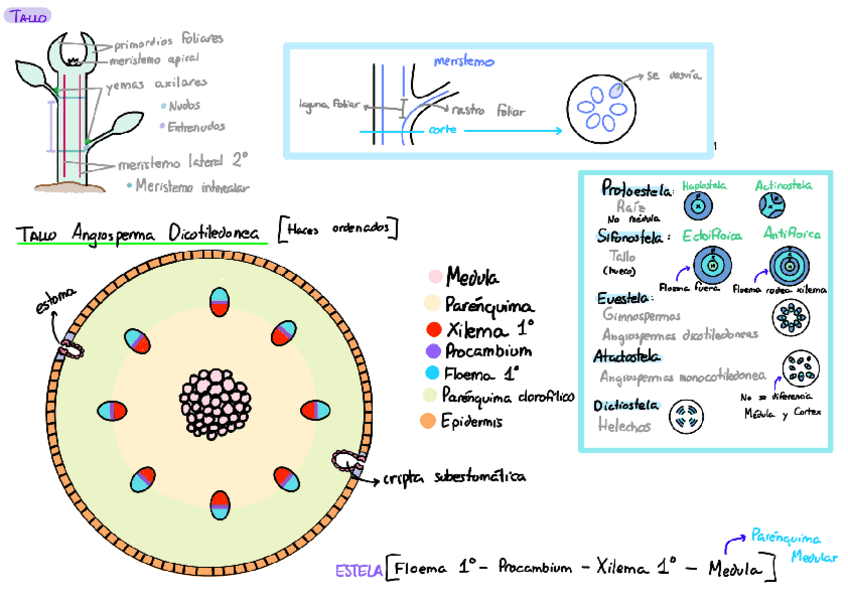 Tallo
primordios foliares
meristemo apical
yemas axilares
Nudos
Entrenudos
meristemo lateral 2º
Meristemo intercalar
meristemo
laguna foliar
rastro foliar
corte
se desvía
Tallo Angiosperma Dicotiledonea [Haces ordenados]
estoma
cripta subestomática
Medula
Parénquima
Xilema 1º
Procambium
Floema 1º
Parénquima clorofílico
Epidermis
Protoestela:
Haplostela
Actinostela
Raíz
No médula
Sifonostela:
Ectofloica
Anfifloica
Tallo
(hueco)
Floema fuera
Floema rodea xilema
Euestela:
Gimnospermas
Angiospermas dicotiledoneas
Atactostela
Angiospermas monocotiledonea
No se diferencia
Médula y Cortex
Dictiostela
Helechos
ESTELA [Floema 1º - Procambium - Xilema 1º - Medula]
Parénquima
Medular